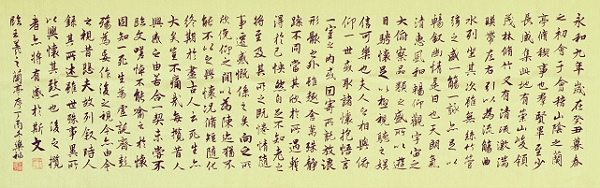 永和九年歲在癸丑暮春
之初會于會稽山陰之蘭
亭脩禊事也羣賢畢至少
長咸集此地有崇山峻領
茂林脩竹又有清流激湍
暎帶左右引以為流觴曲
水列坐其次雖無絲竹管
弦之盛一觴一詠亦足以
暢敘幽情是日也天朗氣
清惠風和暢仰觀宇宙之
大俯察品類之盛所以遊
目騁懷足以極視聽之娛
信可樂也夫人之相與俯
仰一世或取諸懷抱悟言
一室之內或因寄所託放浪
形骸之外雖趣舍萬殊靜
躁不同當其欣於所遇暫
得於己快然自足不知老之
將至及其所之既惓情隨
事遷感慨係之矣向之所
欣俛仰之間以為陳迹猶不
能不以之興懷況脩短隨化
終期於盡古人云死生亦
大矣豈不痛哉每攬昔人
興感之由若合一契未嘗不
臨文嗟悼不能喻之於懷
固知一死生為虛誕齊彭
殤為妄作後之視今亦由今
之視昔悲夫故列敘時人
錄其所述雖世殊事異所
以興懷其致一也後之攬
者亦將有感於斯文
臨王羲之蘭亭序